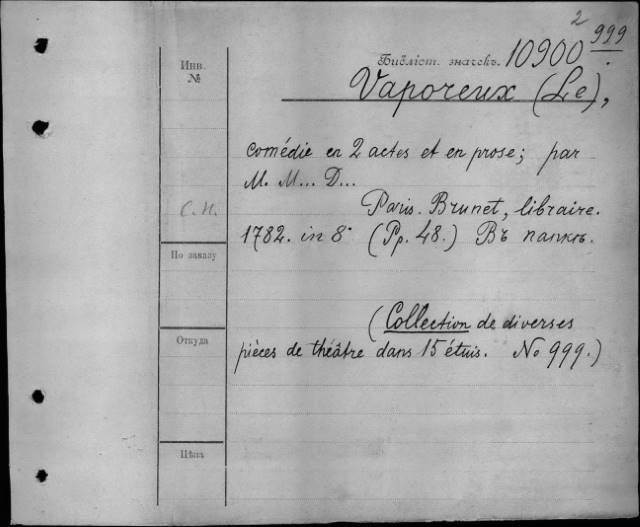 Инв.
№
Библіот. значекъ. 10900 2/999.
Vaporeux (Le),
comédie en 2 actes et en prose; par
M. M... D...
С.П.
Paris. Brunet, libraire.
1782. in 8° (Pp. 48.) Въ папкѣ.
По заказу
(Collection de diverses
Откуда
pièces de théâtre dans 15 étuis. No 999.)
Цѣна